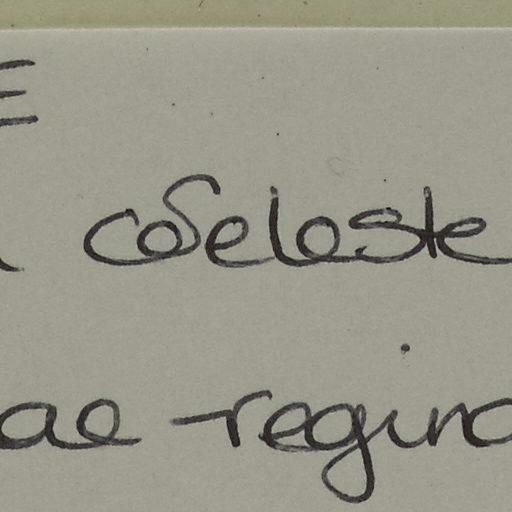 E
coeleste
ae regina